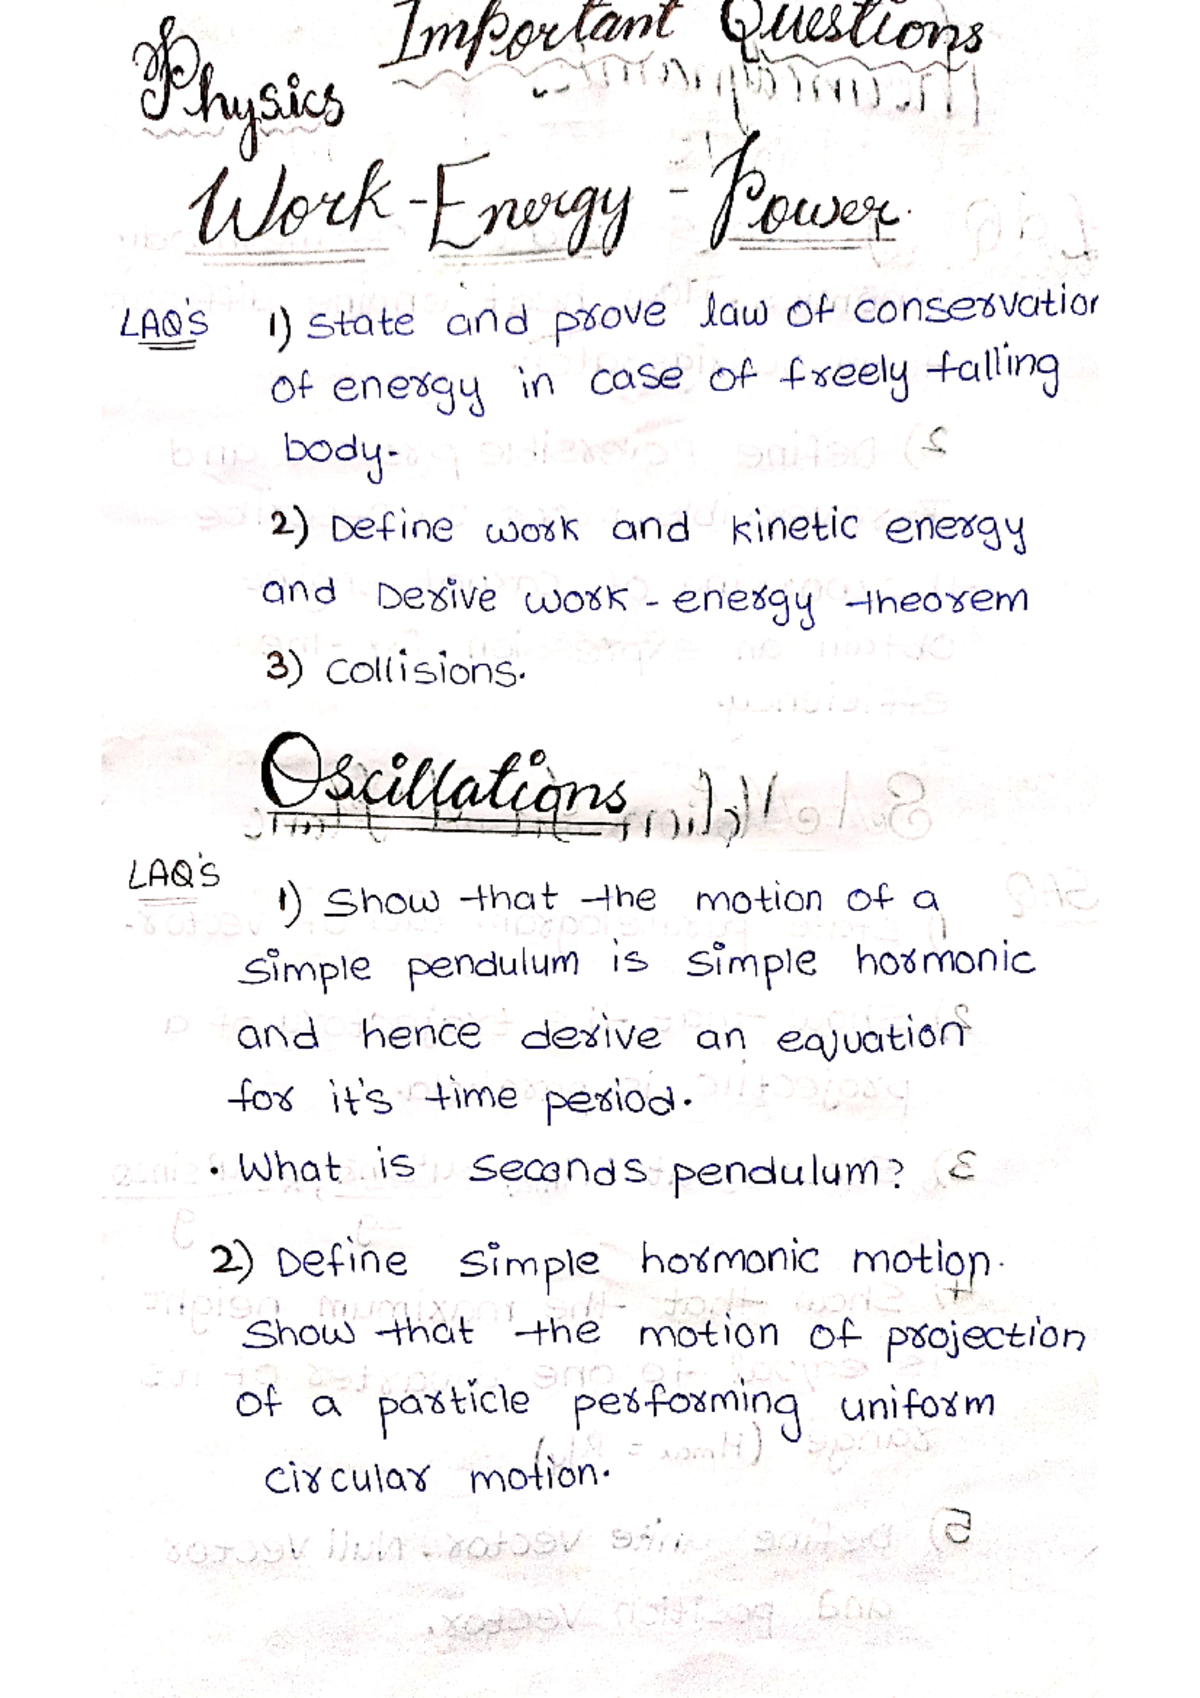 Important Questions
Physics
Work-Energy-Power.
LAQ's 1) State and prove law of conservation
of energy in case of freely falling
body.
2) Define work and kinetic energy
and Derive work-energy theorem
3) Collisions.
Oscillations
LAQ's
1) Show that the motion of a
simple pendulum is simple hormonic
and hence derive an equation
for it's time period.
• What is seconds pendulum?
2) Define simple hormonic motion.
Show that the motion of projection
of a particle performing uniform
circular motion.